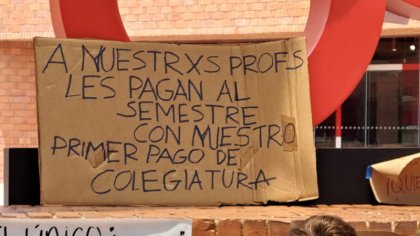 A NUESTRXS PROFS
LES PAGAN AL
SEMESTRE
CON NUESTRO
PRIMER PAGO DE
COLEGIATURA
¡QUIE
EL ÚNICO